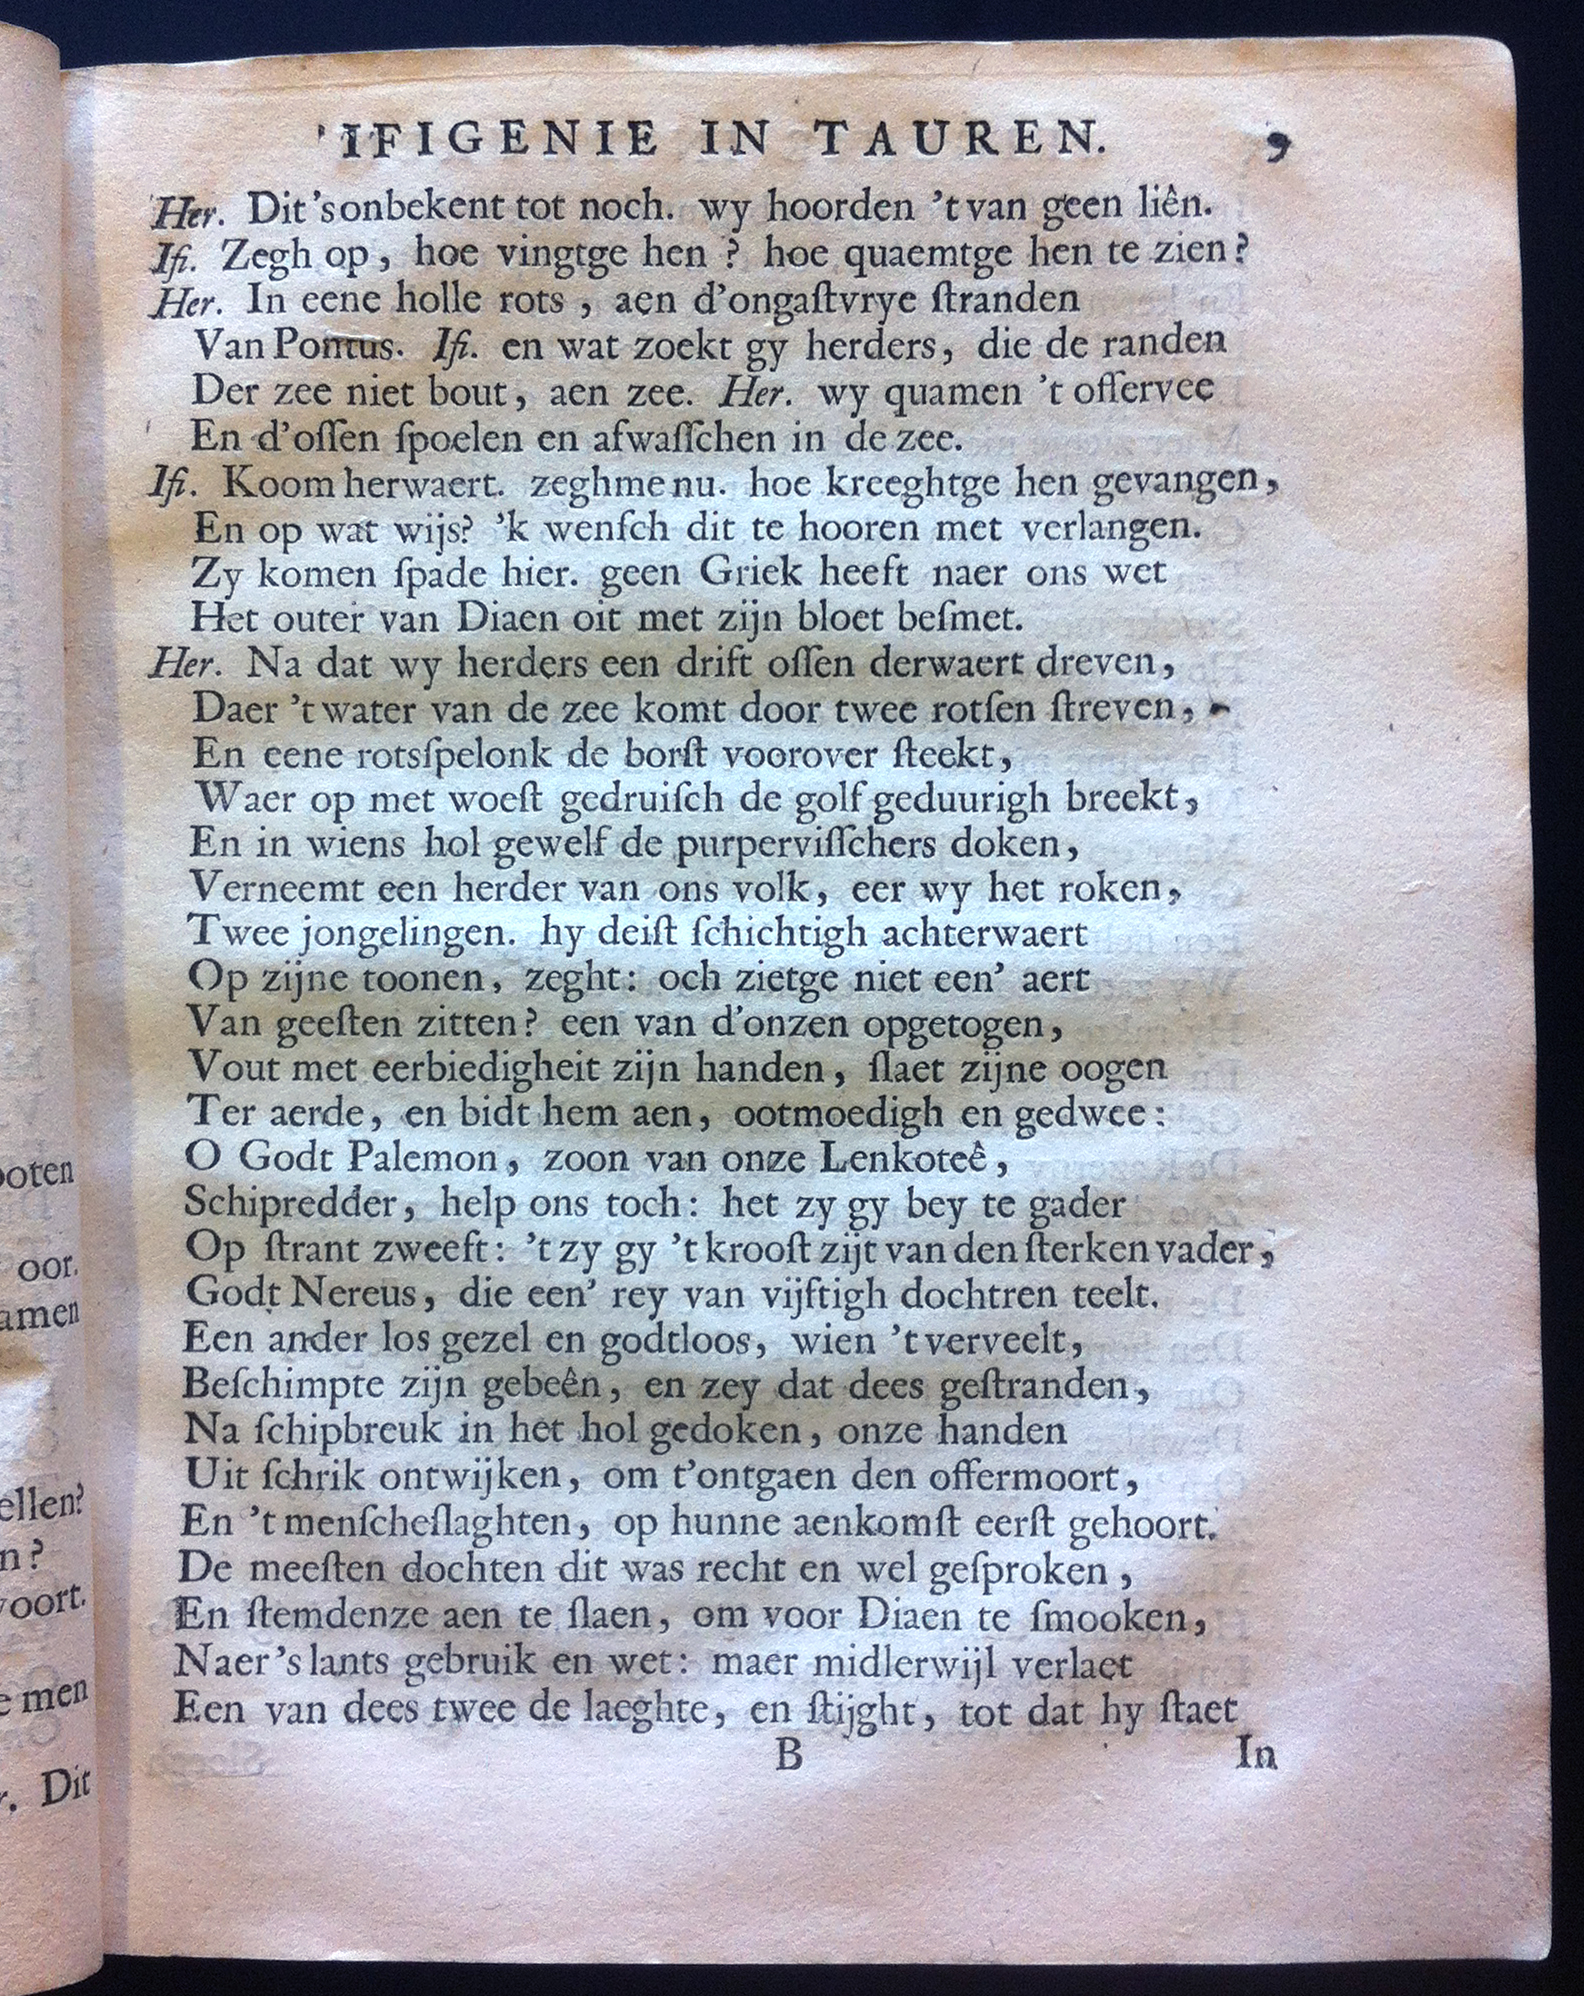 IFIGENIE IN TAUREN. 9
Her. Dit 'sonbekent tot noch. wy hoorden 't van geen liên.
Ifi. Zegh op, hoe vingtge hen ? hoe quaemtge hen te zien?
Her. In eene holle rots , aen d'ongaſtvrye ſtranden
Van Pontus. Ifi. en wat zoekt gy herders, die de randen
Der zee niet bout, aen zee. Her. wy quamen 't offervee
En d'oſſen ſpoelen en afwaſſchen in de zee.
Ifi. Koom herwaert. zeghme nu. hoe kreeghtge hen gevangen,
En op wat wijs? 'k wenſch dit te hooren met verlangen.
Zy komen ſpade hier. geen Griek heeft naer ons wet
Het outer van Diaen oit met zijn bloet beſmet.
Her. Na dat wy herders een drift oſſen derwaert dreven,
Daer 't water van de zee komt door twee rotſen ſtreven,
En eene rotsſpelonk de borſt voorover ſteekt,
Waer op met woeſt gedruiſch de golf geduurigh breekt,
En in wiens hol gewelf de purperviſſchers doken,
Verneemt een herder van ons volk, eer wy het roken,
Twee jongelingen. hy deiſt ſchichtigh achterwaert
Op zijne toonen, zeght: och zietge niet een' aert
Van geeſten zitten? een van d'onzen opgetogen,
Vout met eerbiedigheit zijn handen, ſlaet zijne oogen
Ter aerde, en bidt hem aen, ootmoedigh en gedwee:
O Godt Palemon, zoon van onze Lenkoteê,
Schipredder, help ons toch: het zy gy bey te gader
Op ſtrant zweeft: 't zy gy 't krooſt zijt van den ſterken vader,
Godt Nereus, die een' rey van vijftigh dochtren teelt.
Een ander los gezel en godtloos, wien 't verveelt,
Beſchimpte zijn gebeên, en zey dat dees geſtranden,
Na ſchipbreuk in het hol gedoken, onze handen
Uit ſchrik ontwijken, om t'ontgaen den offermoort,
En 't menſcheſlaghten, op hunne aenkomſt eerſt gehoort.
De meeſten dochten dit was recht en wel geſproken ,
En ſtemdenze aen te ſlaen, om voor Diaen te ſmooken,
Naer 's lants gebruik en wet: maer midlerwijl verlaet
Een van dees twee de laeghte, en ſtijght, tot dat hy ſtaet
B In
ooten
oor.
amen
ellen?
n?
voort.
e men
r. Dit